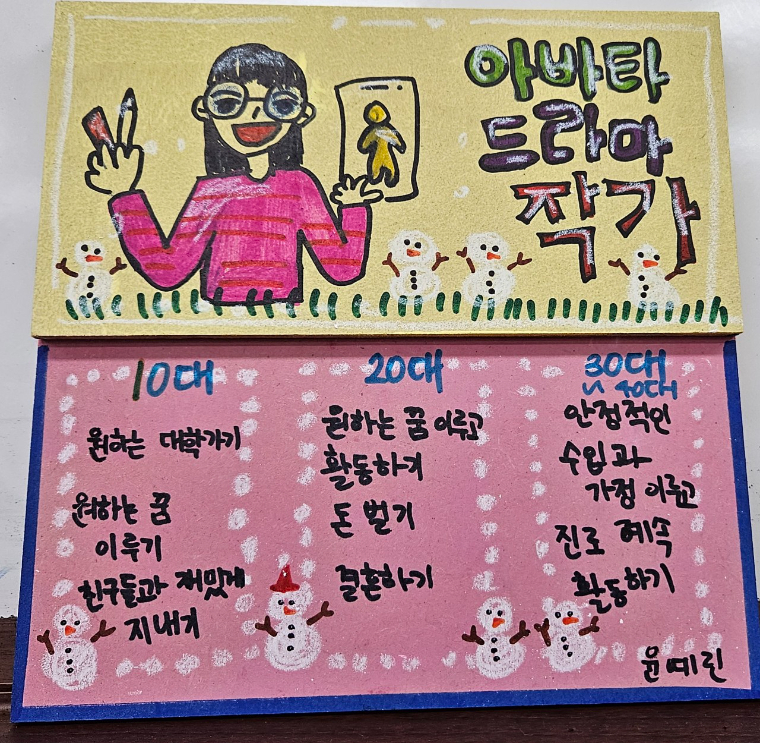 아바타
드라마
작가
10대
원하는 대학가기
원하는 꿈
이루기
친구들과 재밌게
지내기
20대
원하는 꿈 이루고
활동하기
돈 벌기
결혼하기
30대
~40대
안정적인
수입과
가정 이루고
진로 계속
활동하기
윤예린